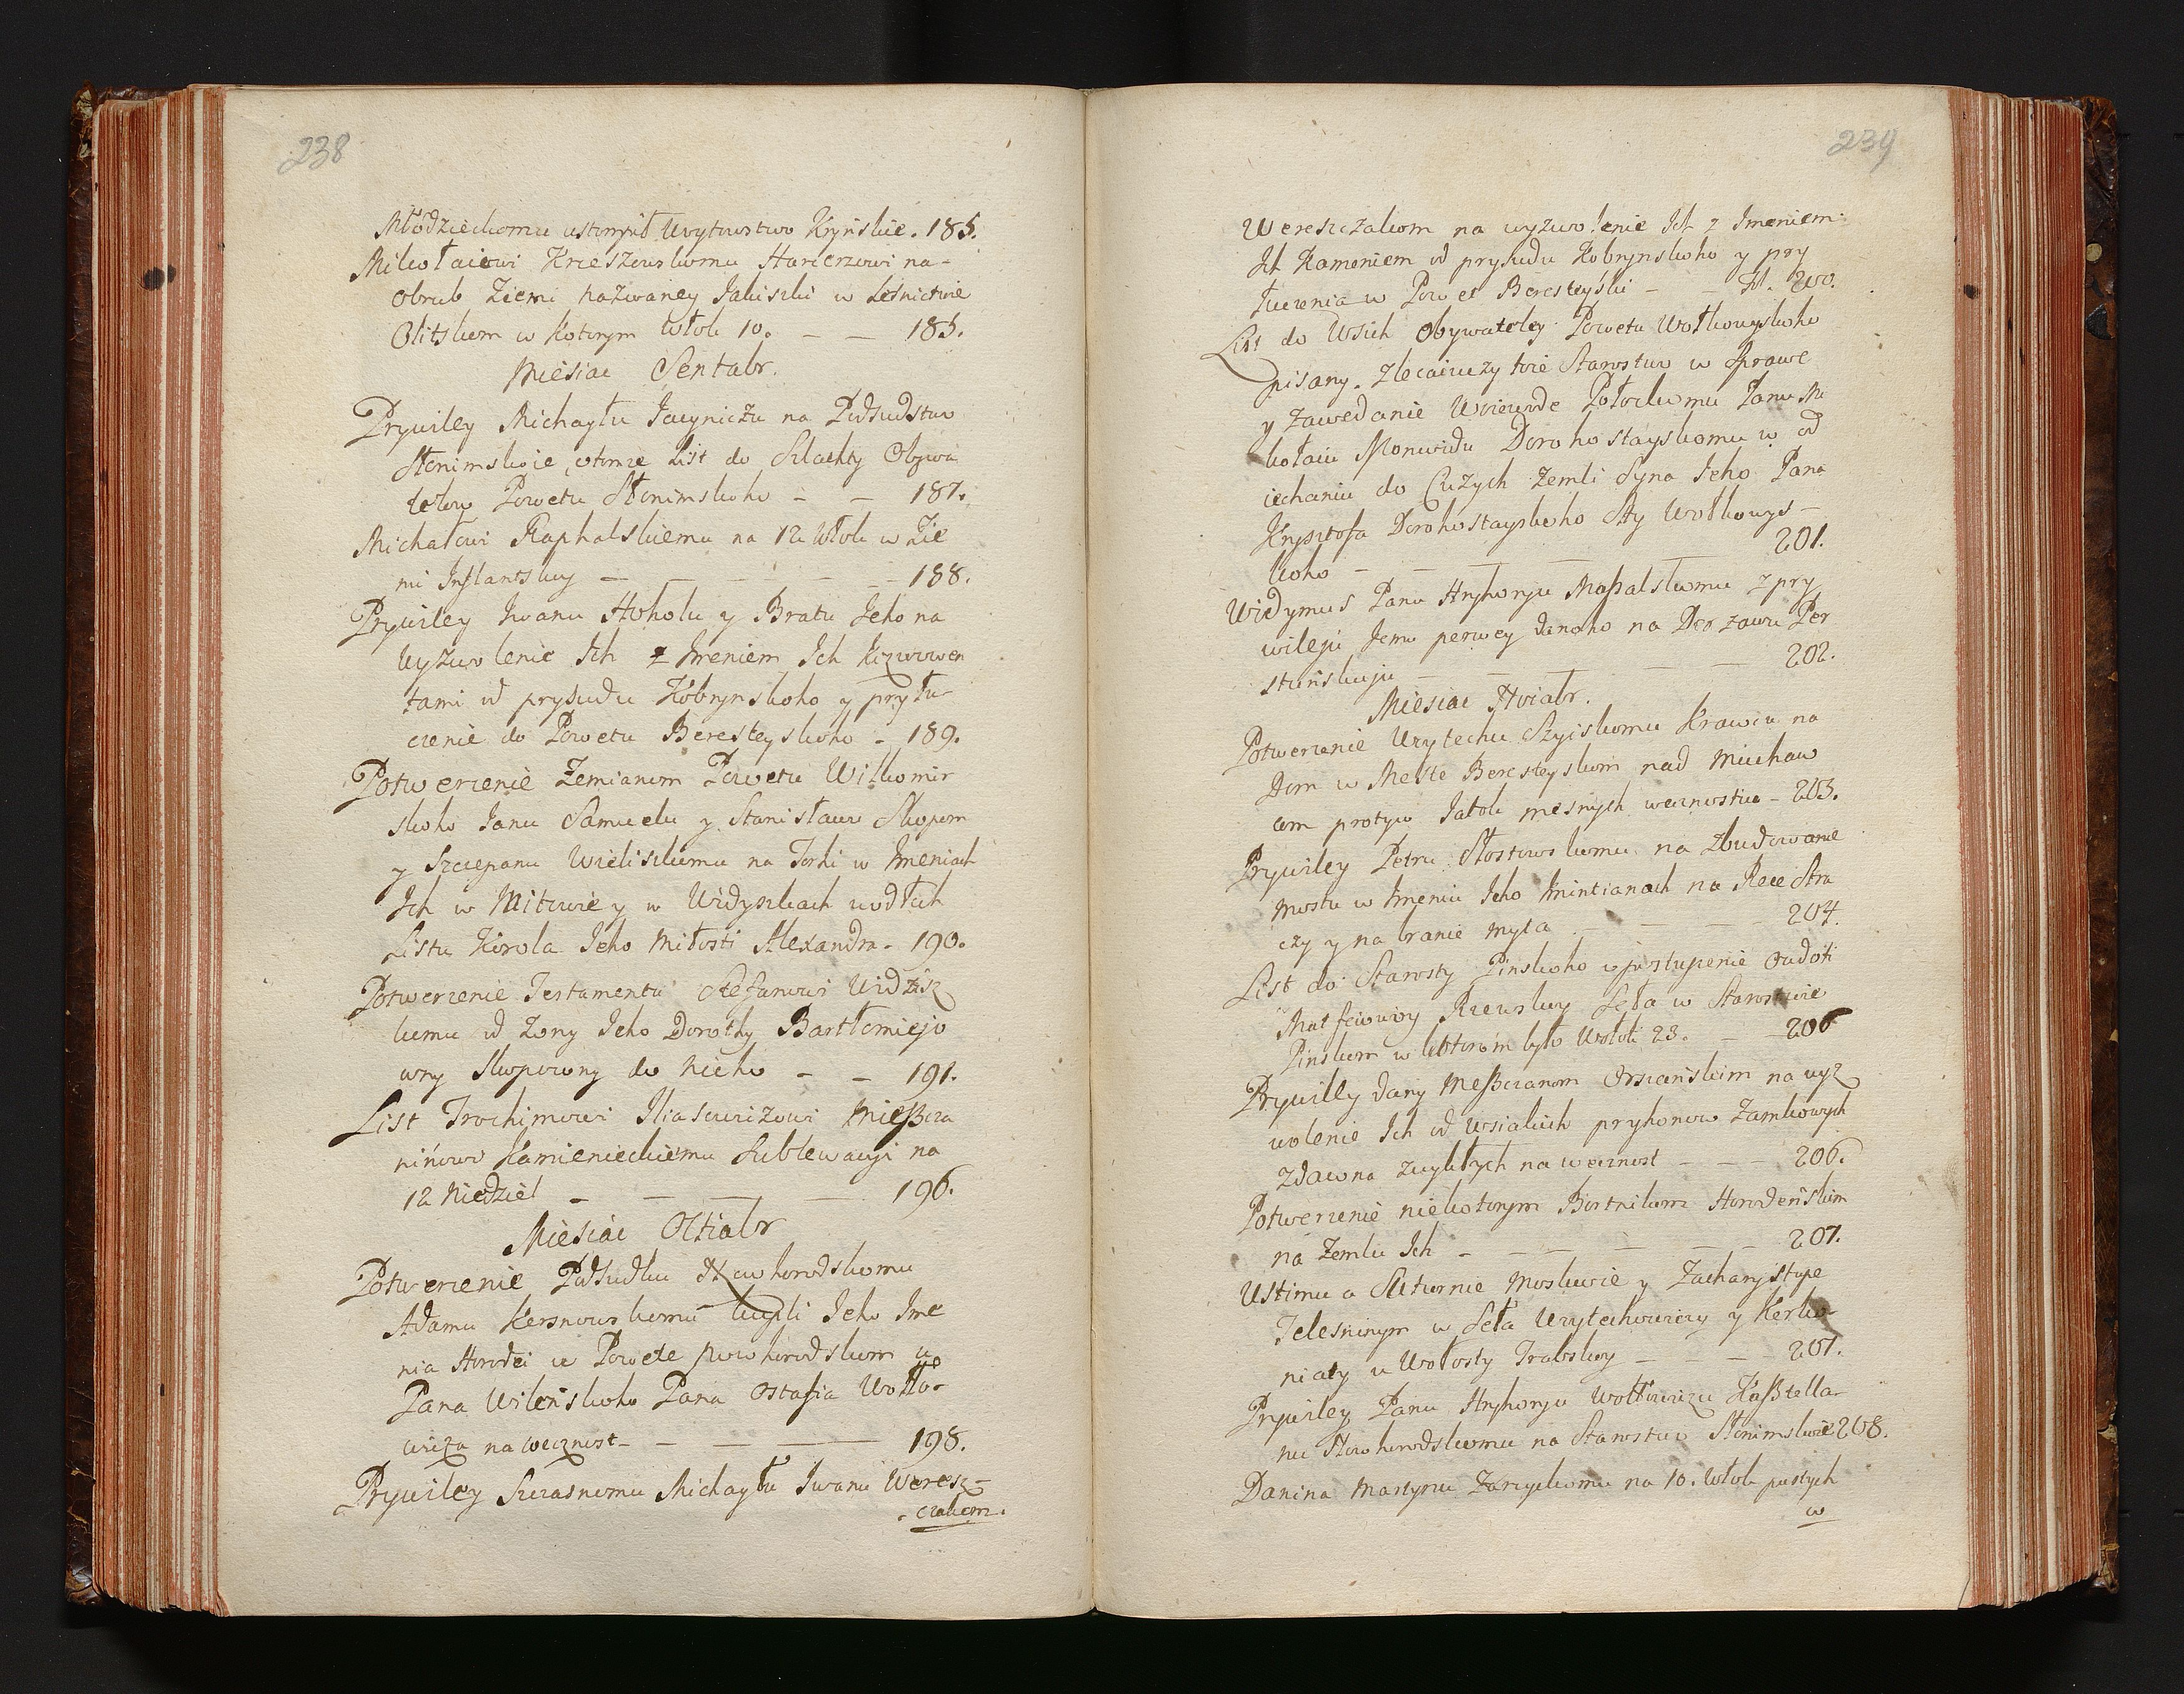 238
Młodzieckomu ustompił Woytowstwo Kryńskie. 185.
Mikołaiowi Krzeszewskomu Harcerzowi na-
obrub Ziemi nazwaney Jakiszki w Leśnictwie
Olitskom w kotorym Włok 10. _ _ 185.
Miesiac Sentabr.
Prywiley Michayłu Jaczyniczu na Podsudstwo
Słonimskoie, wtorze List do Szlachty Obywa
telow Powetu Słonimskoho _ _ 187.
Michałowi Raphalskiemu na 12 Włok w Zie
mi Inflantskiey _ _ _ _ _ _ 188.
Prywiley Iwanu Hoholu y Bratu Jeho na
wyzwolenie Ich z Imeniem Ich
tami od prysudu Kobrynskoho y pryłu
czenie do Powetu Beresteyskoho _ 189.
Potwerzenie Zemianom Powetu Wilkomir
skoho Janu Samuelu y Stanisławu Skopom
y Szczepanu Wieliskumu na Torhi w Imeniach
Ich w Mitowie y w Widyszkach wodłuh
Listu Korola Jeho Miłosti Alexandra. 190.
Potwerzenie Testamentu Stefanowi Widzisz
kumu od Zony Jeho Dorothy Bartłomiejo
wny Skopowny do nieho _ _ 191.
List Trochimowi Iliaszewiczowi Mießcza
ninowi Kamienieckiemu Sublewacyi na
12 Niedziel _ _ _ _ 196.
Miesiac Oktiabr
Potwerzenie Podsudku Nowhorodskomu
Adamu Kersnowskomu kupli Jeho Ime
nia Horodei w Powete Nowhorodskom u
Pana Wilenskoho Pana Ostafia Wołło-
wicza na wecznost _ _ _ _ 198.
Prywiley Szczasnomu Michayłu Iwanu Weresz-
czakom.
239
Wereszczakom na wyzwolenie Ich z Imeniem
Ich Kameniem od prysudu Kobrynskoho y pry
łuczenia w Powet Beresteyski _ _ fol. 200.
List do Wsich Obywateley Powetu Wołkowyskoho
pisany. Zlecaiuczy toie Starostwo w Sprawe
y Zawedanie Woiewode Połockomu Panu Mi
kołaiu Monwidu Dorohostayskomu w od
iechaniu do Cużych Zemli Syna Jeho Pana
Krysztofa Dorohostayskoho Sty Wołkowys-
koho _ _ _ _ _ 201.
Widymus Panu Hryhoryu Maßalskomu z pry
wileju Jemu perwey danoho na Derzawu Per
stuńskuju _ _ _ _ _ 202.
Miesiac Noiabr.
Potwerzenie Woytechu Szyiskomu Krawcu na
Dom w Meste Beresteyskom nad Muchaw
cem protyw Jatok mesnych wecznostiu _ 203.
Prywiley Petru Słostowskomu na Zbudowanie
Mostu w Imeniu Jeho Mintianach na Rece Stra
czy y na branie Myta _ _ _ 204.
List do Starosty Pinskoho w postupenie Owdoti
Matfeiowoy Rzewskoy Seła w Starostwie
Pinskom w kotorom było Wołok 23. _ _ 206
Prywiley dany Meßczanom Orszańskim na wyz
wolenie Ich od Wsiakich pryhonow Zamkowych
Zdawna zwykłych na wecznost _ _ _ 206.
Potwerzenie niekotorym Bortnikom Horodeńskim
na Zemlu Ich _ _ _ _ _ _ 207.
Ustimu a Sutornie Moskwie y Zacharystupe
Telesninym w Seła Woytechowiczy y Kerko-
niaty u Wołosty Trabskoy _ _ _ 207.
Prywiley Panu Hryhoryu Wołłowiczu Kaßtella-
nu Nowhorodskomu na Starostwo Słonimskoie 208.
Danina Martynu Zareckomu na 10. Włok pustych
w